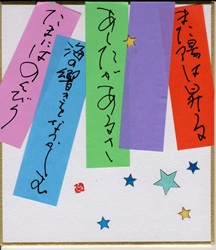 また陽は昇る
あしたがあるさ
海の響きをなつかしむ
たまにはのんびり